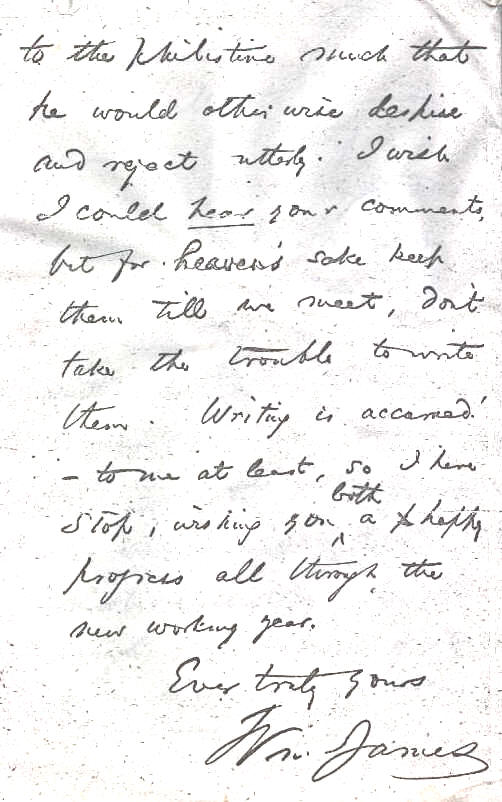 to the philistine much that
he would otherwise despise
and reject utterly. I wish
I could hear your comments,
but for heaven's sake keep
them till we meet, don't
take the trouble to write
them. Writing is accursed!
– to me at least, so I here
stop, wishing you both a happy
progress all through the
new working year.
Ever truly yours
Wm. James